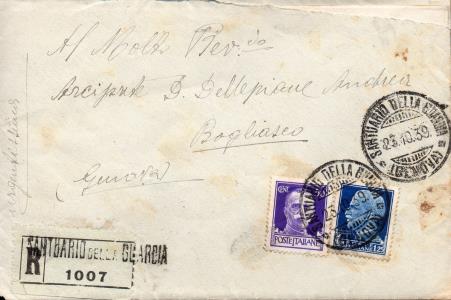 Al Molto Rev.do
Arciprete D. Dellepiane Andrea
Bogliasco
Genova
SANTUARIO DELLA GUARDIA
23.10.39
(GENOVA)
DELLA GUARDIA
CENT.
POSTE ITALIANE
R
SANTUARIO DELLA GUARDIA
1007